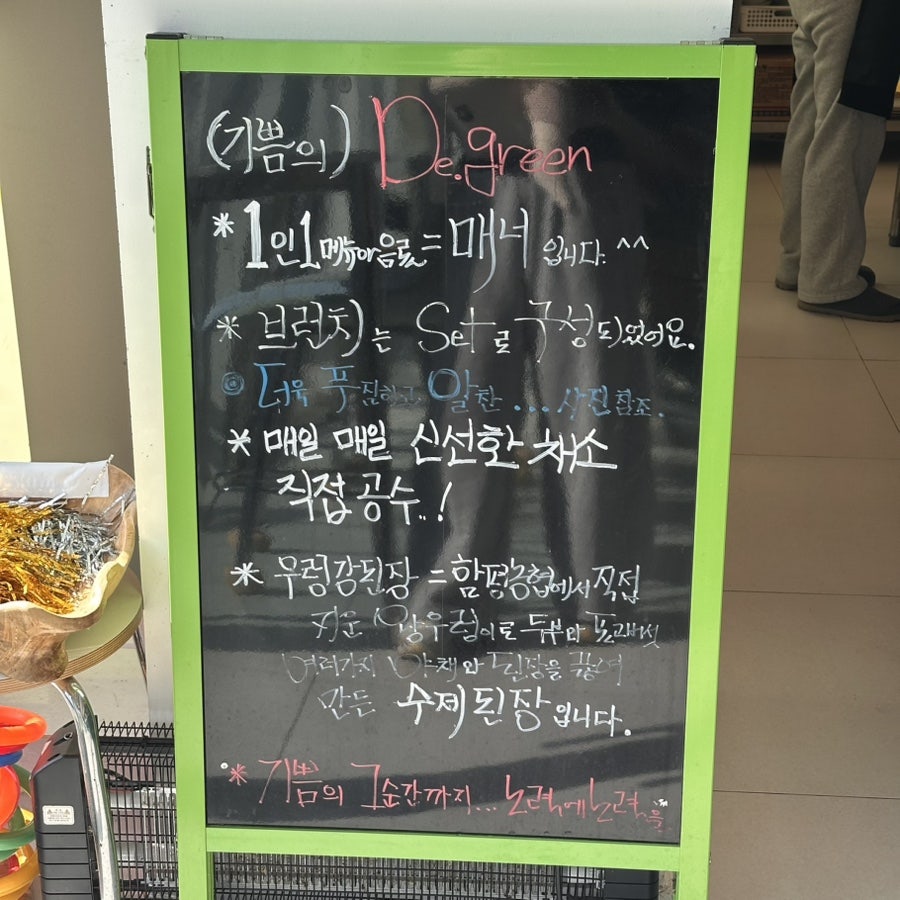 (기쁨의) De.green
* 1인1메뉴마음료=매너 입니다. ^^
* 브런치는 Set로 구성되었어요.
◎ 더욱 푸짐하고 알찬 ... 사진참조.
* 매일 매일 신선한 채소
직접 공수..!
* 우렁강된장 = 함평농협에서 직접
키운 왕우렁이로 두부와 표고버섯
여러가지 야채와 된장을 끓여
만든 수제된장입니다.
* 기쁨의 그순간까지... 노력에노력을